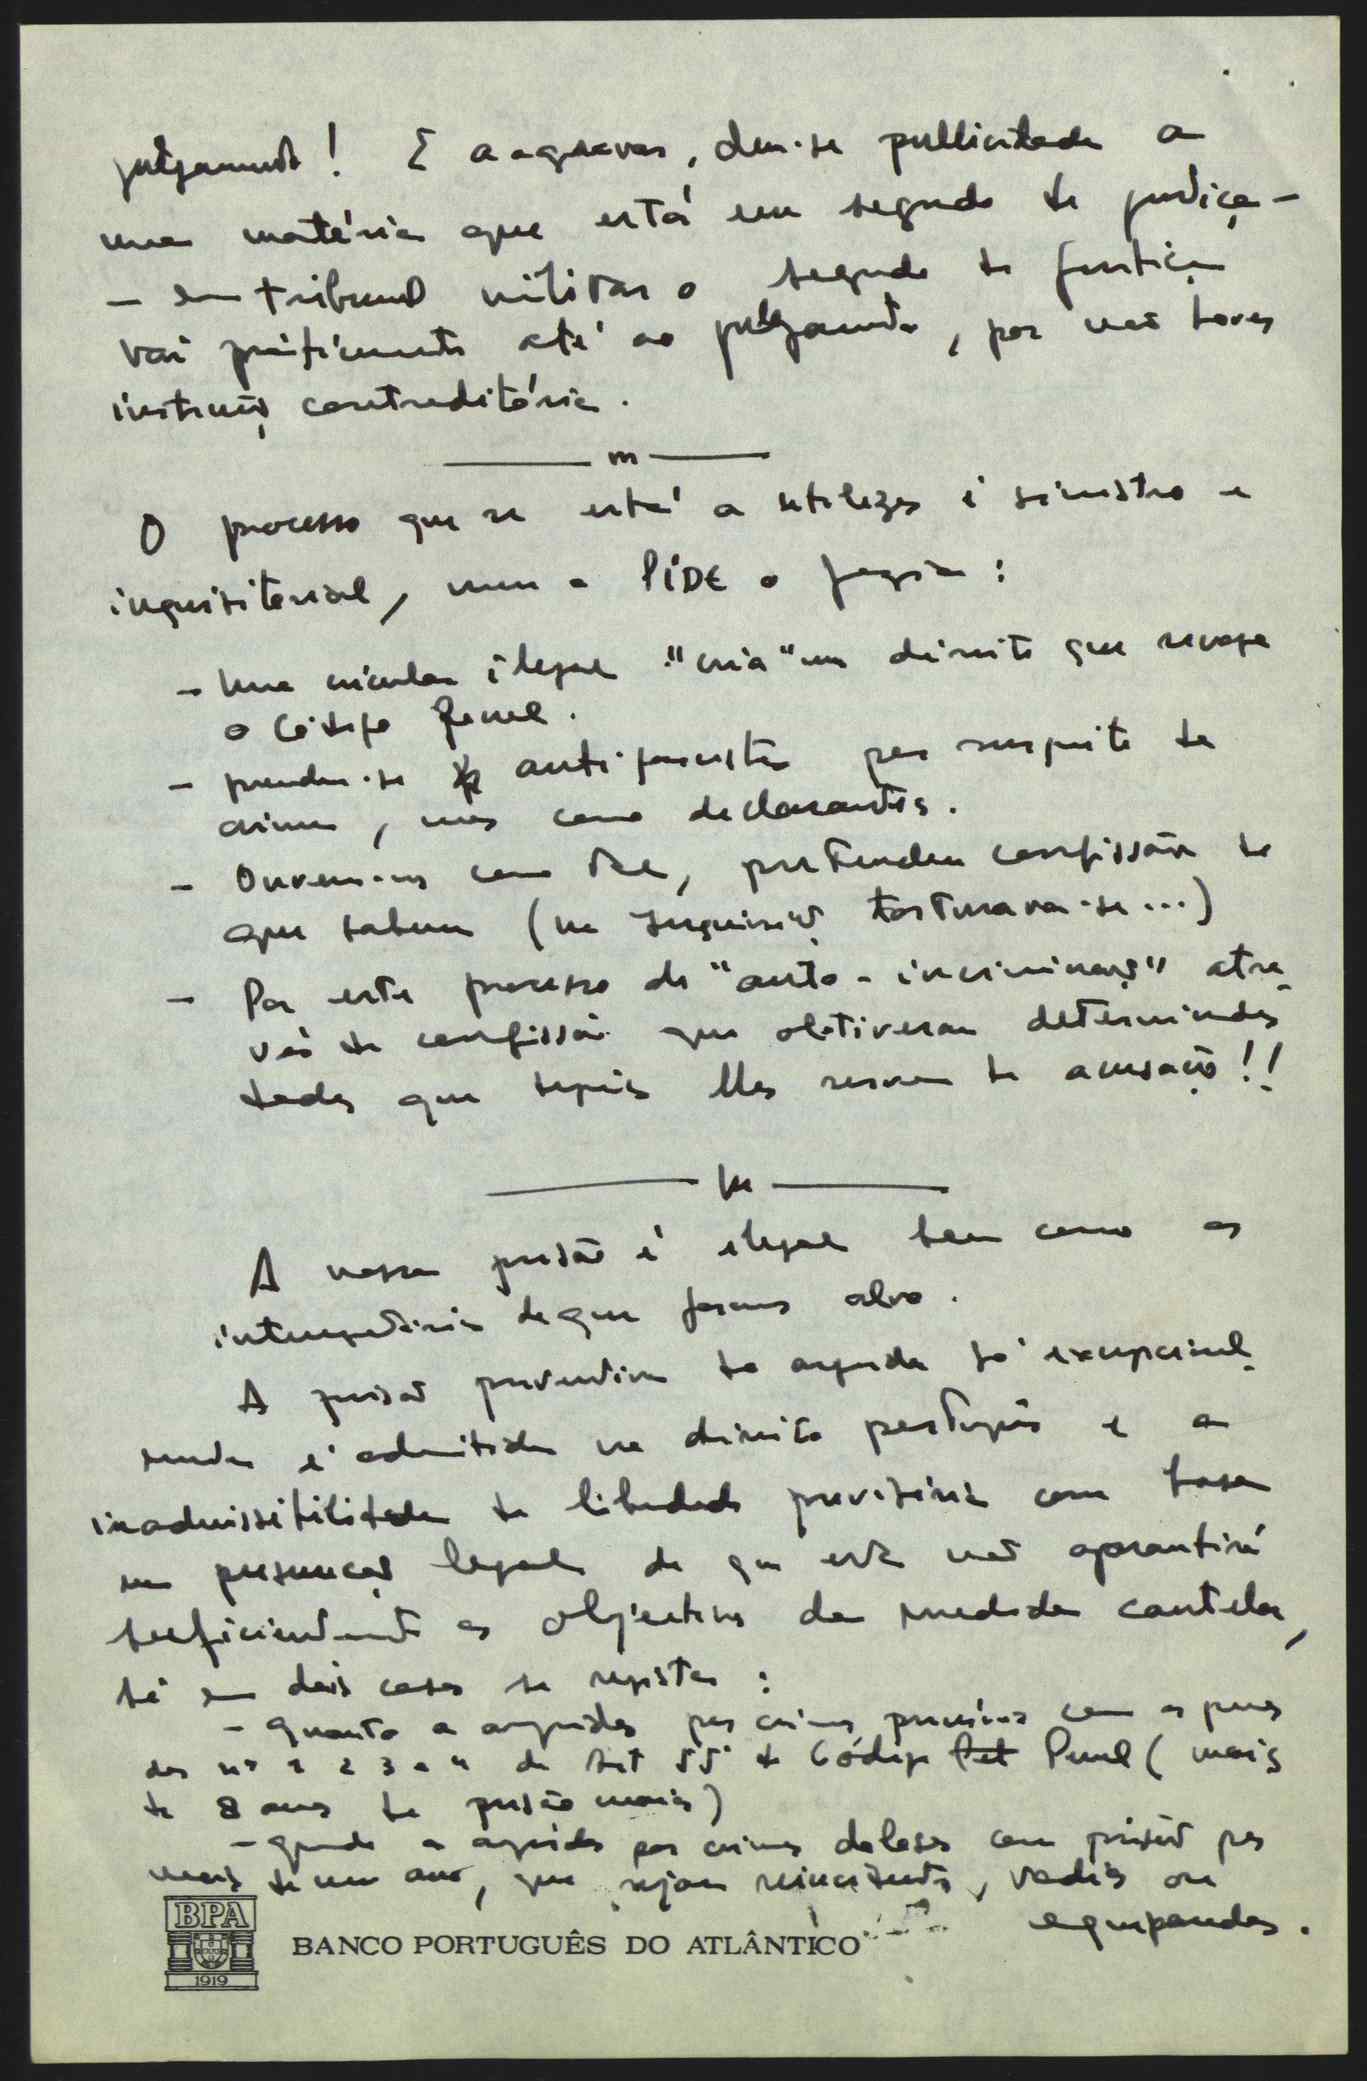 julgamento! E a agravar, deu-se publicidade a
uma matéria que está em segredo de justiça -
- em tribunal militar o segredo de justiça
vai praticamente até ao julgamento, por não haver
instrução contraditória.
— m —
O processo que se está a utilizar é sinistro e
inquisitorial, nem a PIDE o fazia:
- Uma circular ilegal "cria" um direito que revoga
o Código Penal.
- prendem-se anti-fascistas por suspeita de
crime, mas como declarantes.
- Ouvem-nos como tal, pretendem confissão do
que sabem (na Inquisição torturava-se...)
- Por este processo de "auto-incriminação" atra-
vés de confissão que obtiveram determinados
dados que depois lhes servem de acusação!!
— m —
A nossa prisão é ilegal bem como os
interrogatórios de que fomos alvo.
A prisão preventiva do arguido só excepcional-
mente é admitida no direito português e a
inadmissibilidade de liberdade provisória com base
na presunção legal de que esta não garantirá
suficientemente os objectivos da medida cautelar,
só em dois casos se regista:
- Quanto a arguidos por crimes puníveis com as penas
dos nºs 1 2 3 e 4 do Art 55º do Código Penal (mais
de 8 anos de prisão maior)
- quando a arguidos por crimes dolosos com prisão por
mais de um ano, que sejam reincidentes, vadios ou
equiparados.
BPA
1919
BANCO PORTUGUÊS DO ATLÂNTICO